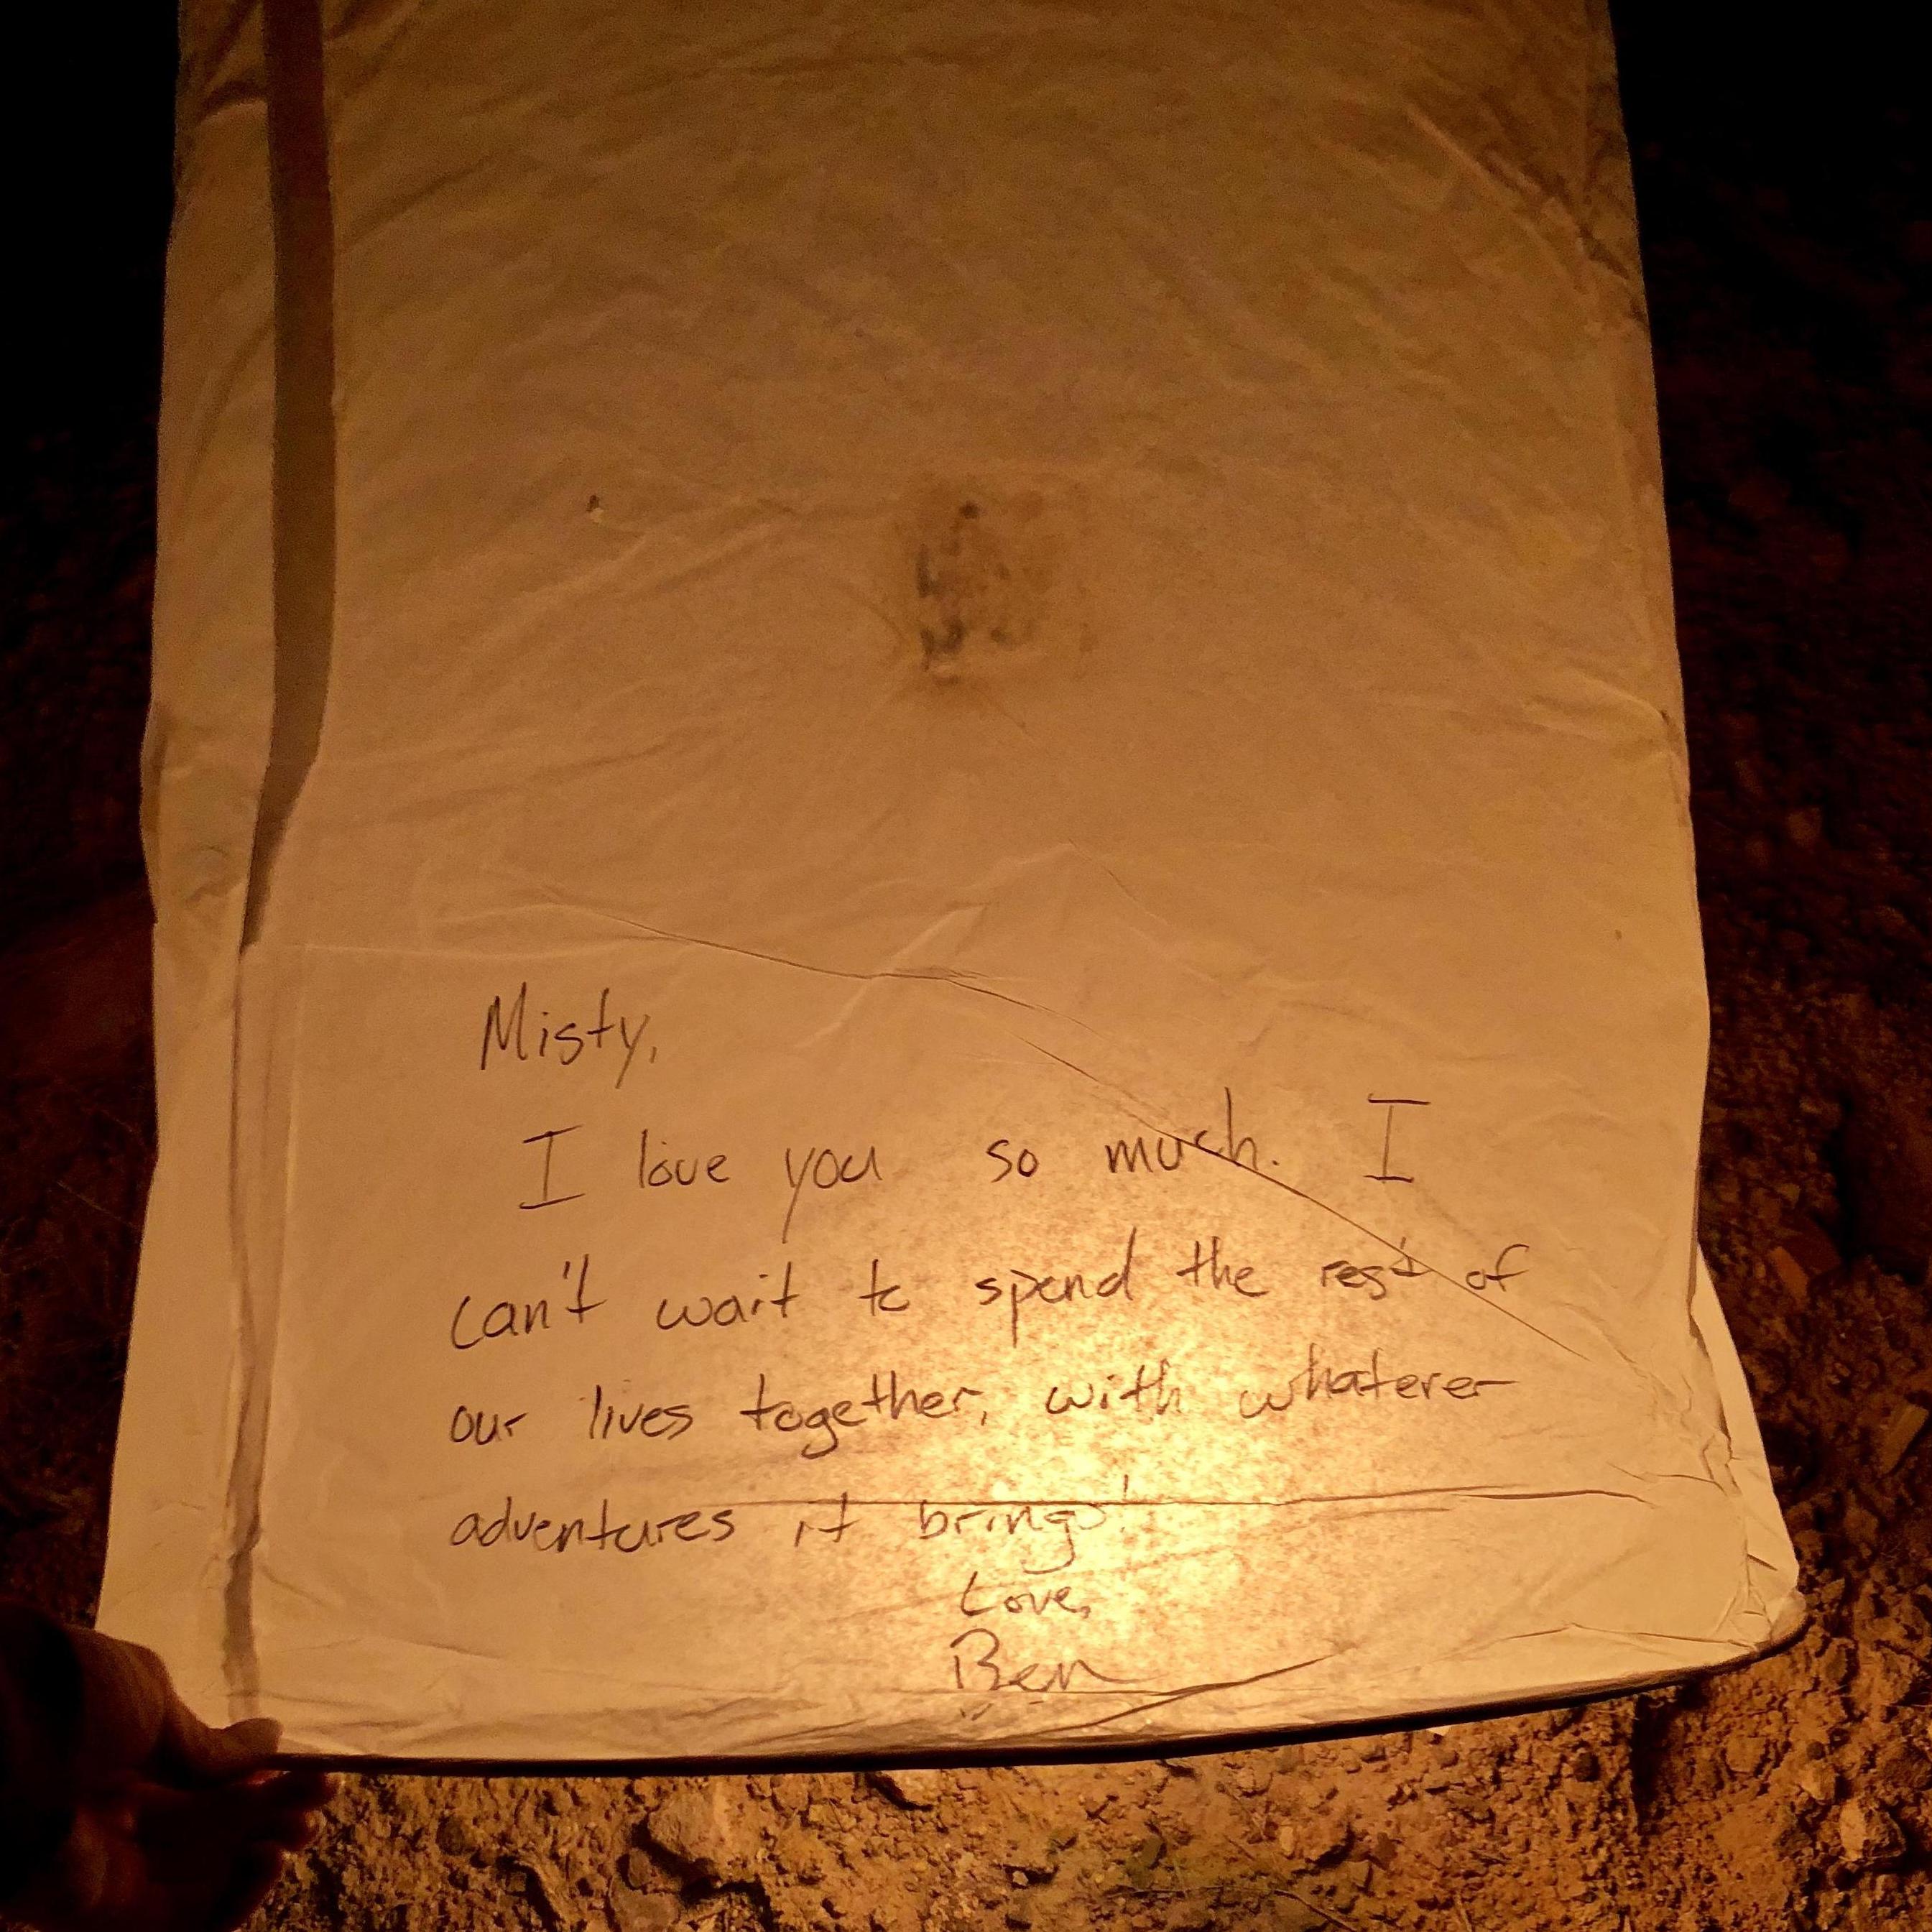 Misty,
I love you so much. I
can't wait to spend the rest of
our lives together, with whatever
adventures it brings!
Love,
Ben